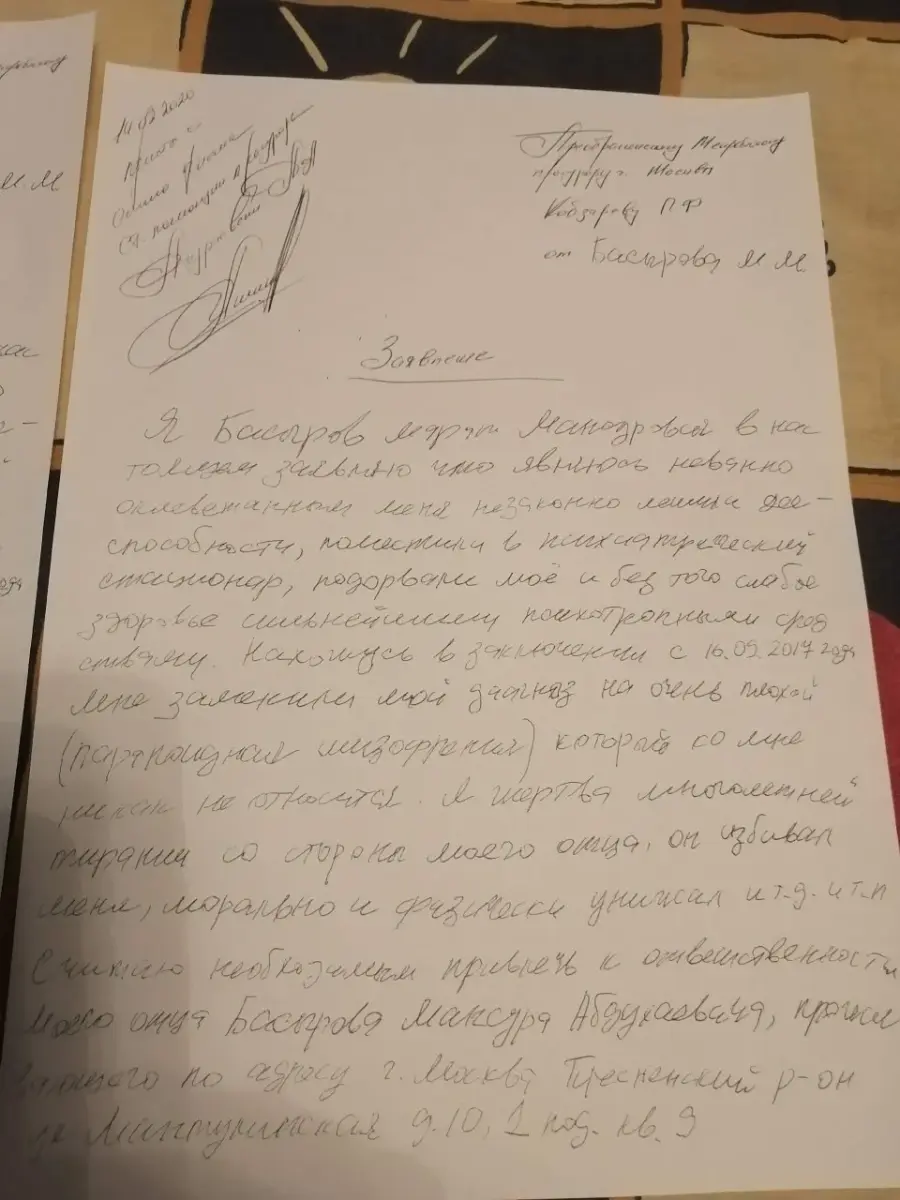 14.02.2020
ст. помощник прокурора
прокурору г. Москвы
от Басырова М. М.
Заявление
Я Басыров Марат Мансурович в нас
тоящем заявляю что являюсь невинно
оклеветанным меня незаконно лишили дее-
способности, поместили в психиатрический
стационар, подорвали моё и без того слабое
здоровье сильнейшими психотропными сред
ствами. Нахожусь в заключении с 16.09.2017 года
Мне заменили мой диагноз на очень плохой
(параноидная шизофрения) который ко мне
никак не относится. Я жертва многолетней
тирании со стороны моего отца, он избивал
меня, морально и физически унижал и т.д. и т.п
Считаю необходимым привлечь к ответственности
моего отца Басырова Мансура, прожи
вающего по адресу г. Москва Пресненский р-он
ул Мантулинская д. 10, 1 под. кв. 9
М. М